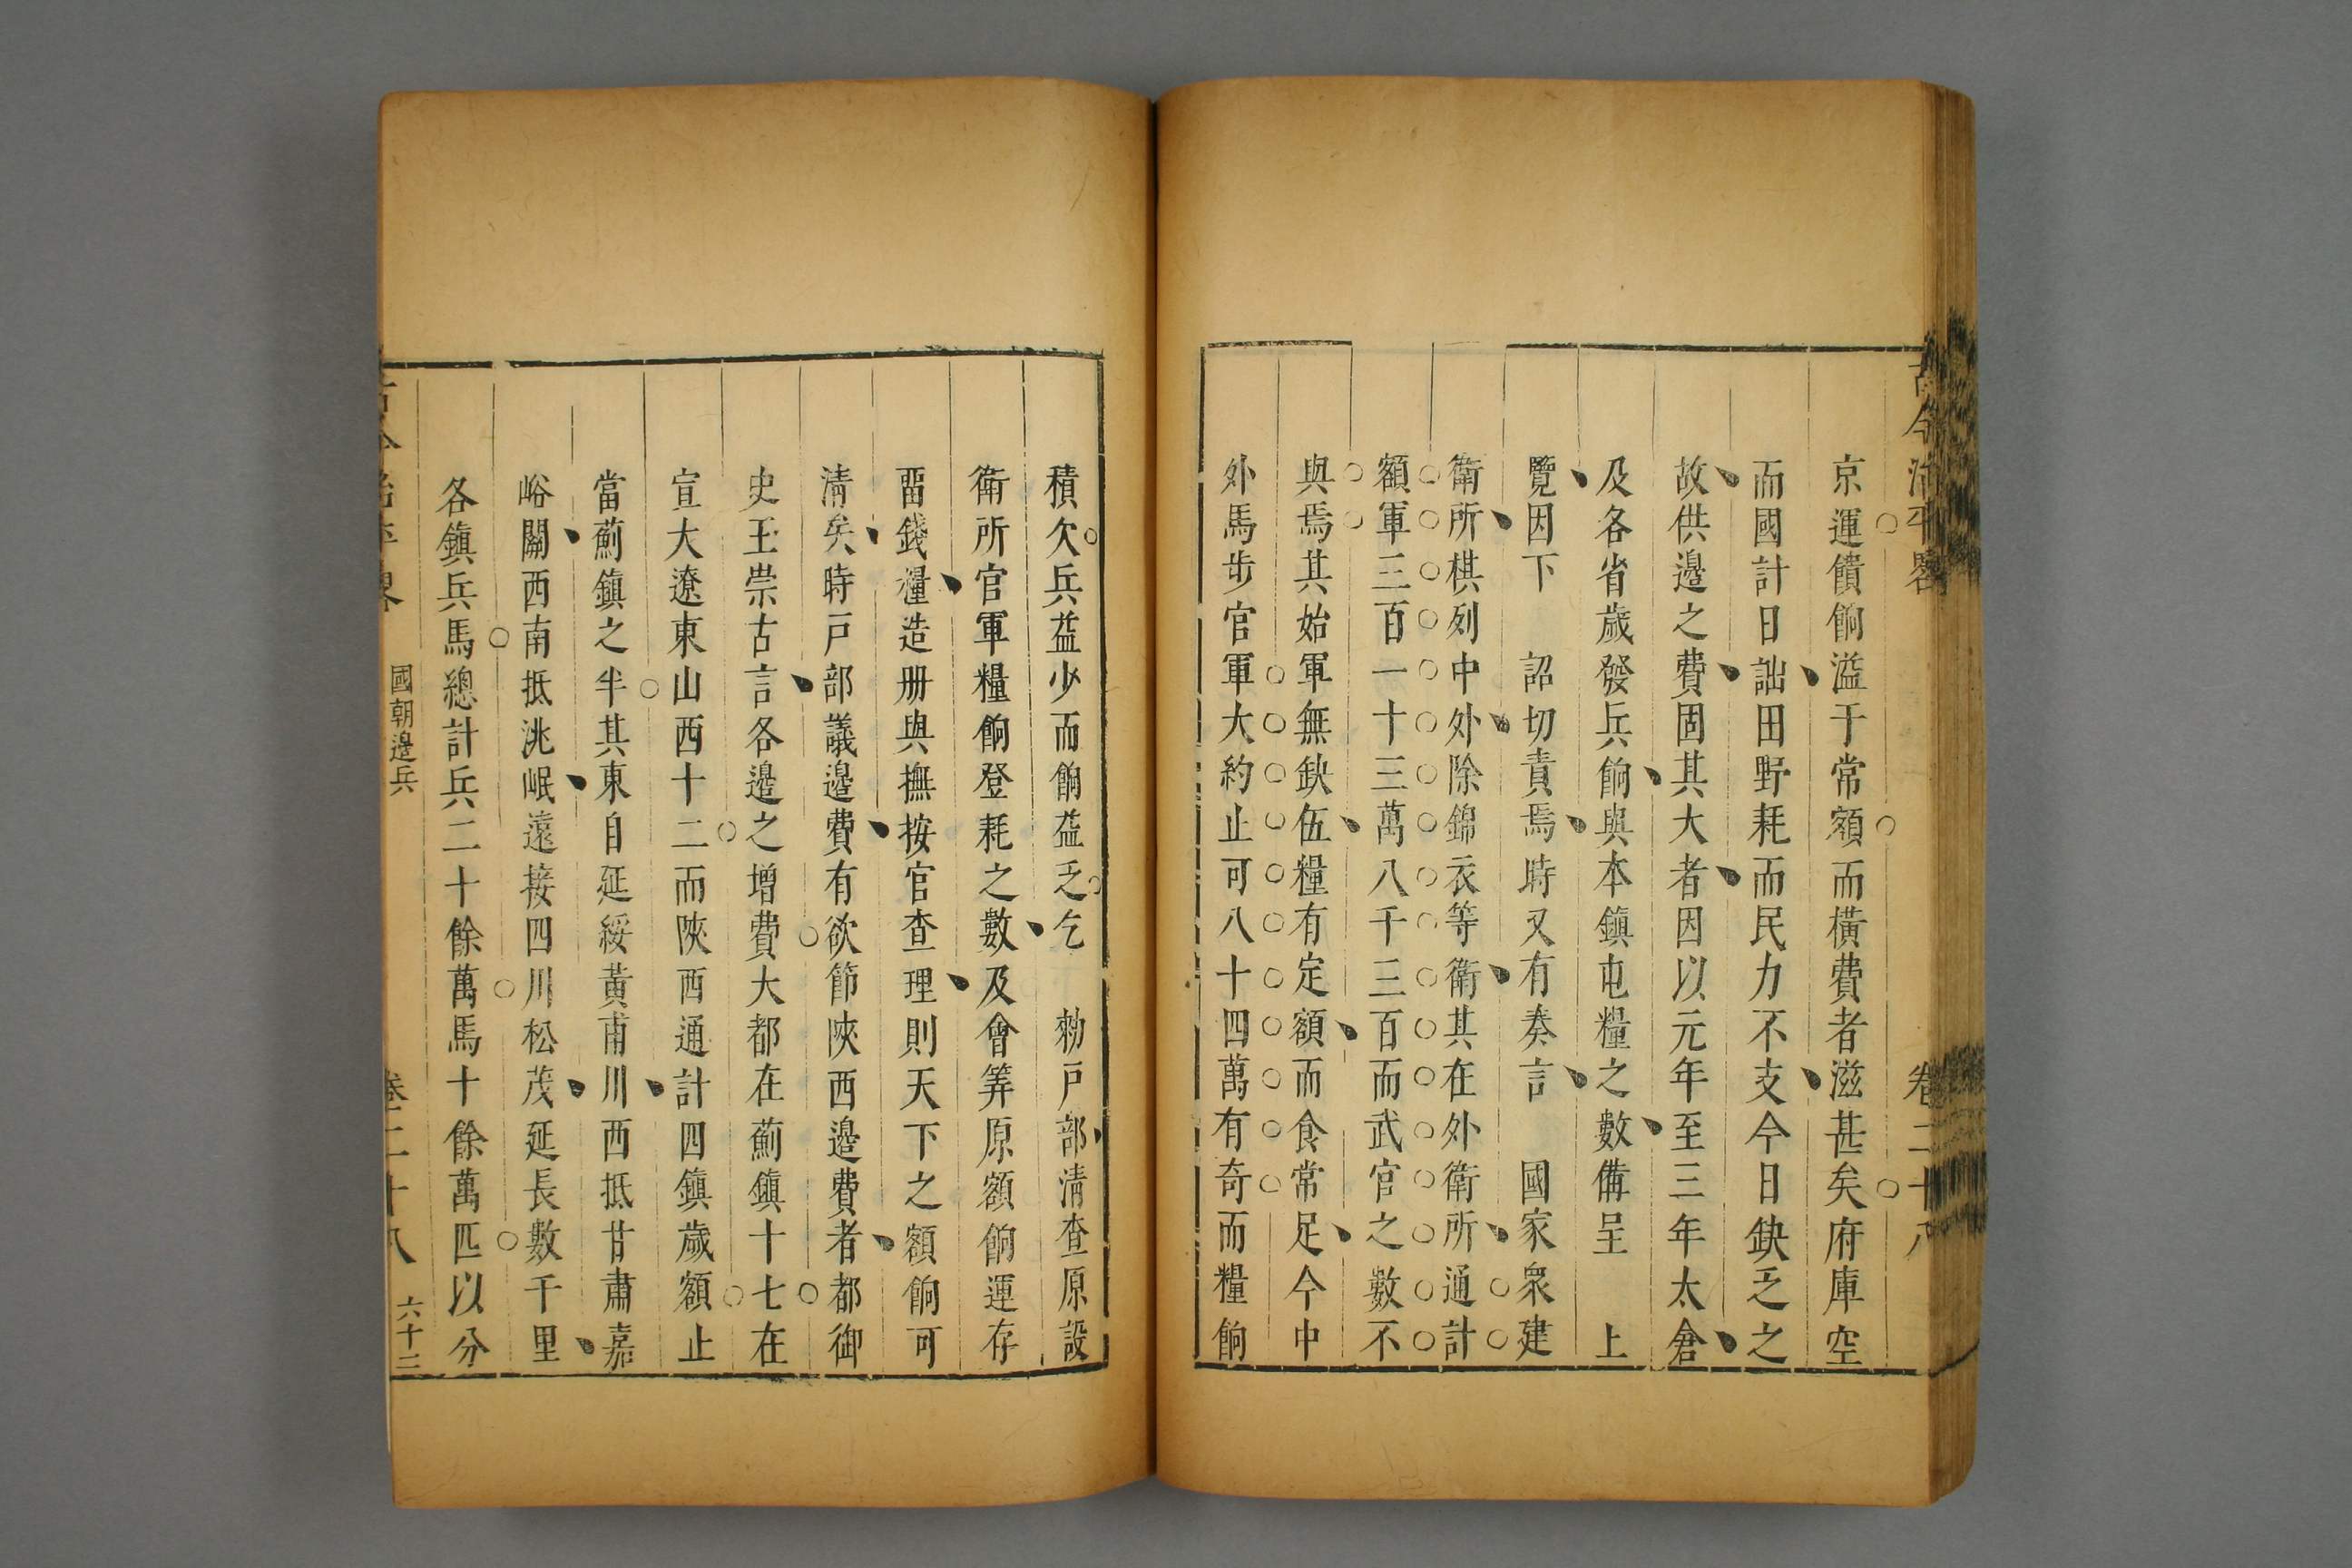 古今治平畧 卷二十八
京運饋餉溢于常額而橫費者滋甚矣府庫空
而國計日詘田野耗而民力不支今日缺乏之
故供邊之費固其大者因以元年至三年太倉
及各省歲發兵餉與本鎮屯糧之數備呈 上
覽因下 詔切責焉時又有奏言 國家衆建
衛所棋列中外除錦衣等衛其在外衛所通計
額軍三百一十三萬八千三百而武官之數不
與焉其始軍無缺伍糧有定額而食常足今中
外馬步官軍大約止可八十四萬有奇而糧餉
積欠兵益少而餉益乏乞 勑戸部清查原設
衛所官軍糧餉登耗之數及會筭原額餉運存
畱錢糧造册與撫按官查理則天下之額餉可
清矣時戸部議邊費有欲節陝西邊費者都御
史王崇古言各邊之增費大都在薊鎮十七在
宣大遼東山西十二而陝西通計四鎮歲額止
當薊鎮之半其東自延綏黃甫川西抵甘肅嘉
峪關西南抵洮岷遠接四川松茂延長數千里
各鎮兵馬總計兵二十餘萬馬十餘萬匹以分
國朝邊兵 卷二十八 六十三